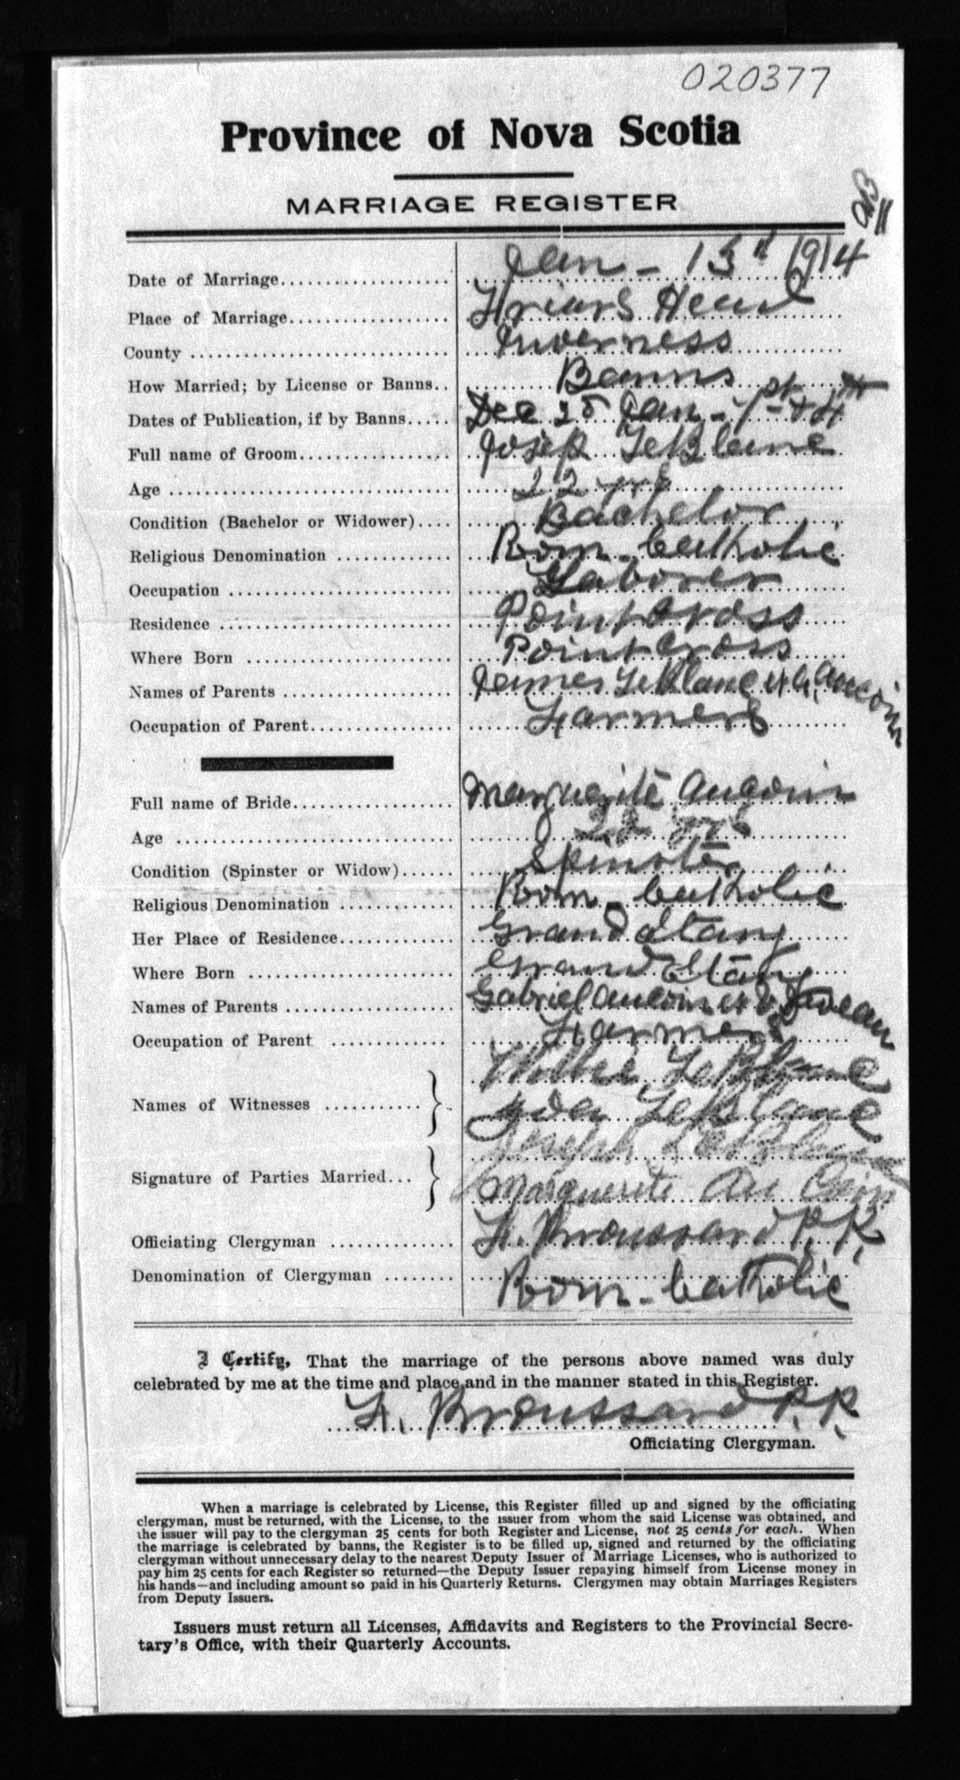 020377
Province of Nova Scotia
MARRIAGE REGISTER
Date of Marriage Jan - 13th 1914
Place of Marriage Friars Head
County Inverness
How Married; by License or Banns Banns
Dates of Publication, if by Banns Dec 28 Jan - 1st & 4th
Full name of Groom Josep LeBlanc
Age 22 yrs
Condition (Bachelor or Widower) Bachelor
Religious Denomination Rom - Catholic
Occupation Laborer
Residence Point Cross
Where Born Point Cross
Names of Parents James LeBlanc et A. Aucoin
Occupation of Parent Farmers
Full name of Bride Marguerite Aucoin
Age 22 yrs
Condition (Spinster or Widow) Spinster
Religious Denomination Rom - Catholic
Her Place of Residence Grand Etang
Where Born Grand Etang
Names of Parents Gabriel Aucoin et
Occupation of Parent Farmers
Names of Witnesses Willie LeBlanc
LeBlanc
Signature of Parties Married Joseph LeBlanc
Marguerite Au Coin
Officiating Clergyman A. Broussard P.P.
Denomination of Clergyman Rom - Catholic
I Certify, That the marriage of the persons above named was duly
celebrated by me at the time and place and in the manner stated in this Register.
A. Broussard P.P.
Officiating Clergyman.
When a marriage is celebrated by License, this Register filled up and signed by the officiating
clergyman, must be returned, with the License, to the issuer from whom the said License was obtained, and
the issuer will pay to the clergyman 25 cents for both Register and License, not 25 cents for each. When
the marriage is celebrated by banns, the Register is to be filled up, signed and returned by the officiating
clergyman without unnecessary delay to the nearest Deputy Issuer of Marriage Licenses, who is authorized to
pay him 25 cents for each Register so returned—the Deputy Issuer repaying himself from License money in
his hands—and including amount so paid in his Quarterly Returns. Clergymen may obtain Marriages Registers
from Deputy Issuers.
Issuers must return all Licenses, Affidavits and Registers to the Provincial Secre-
tary's Office, with their Quarterly Accounts.